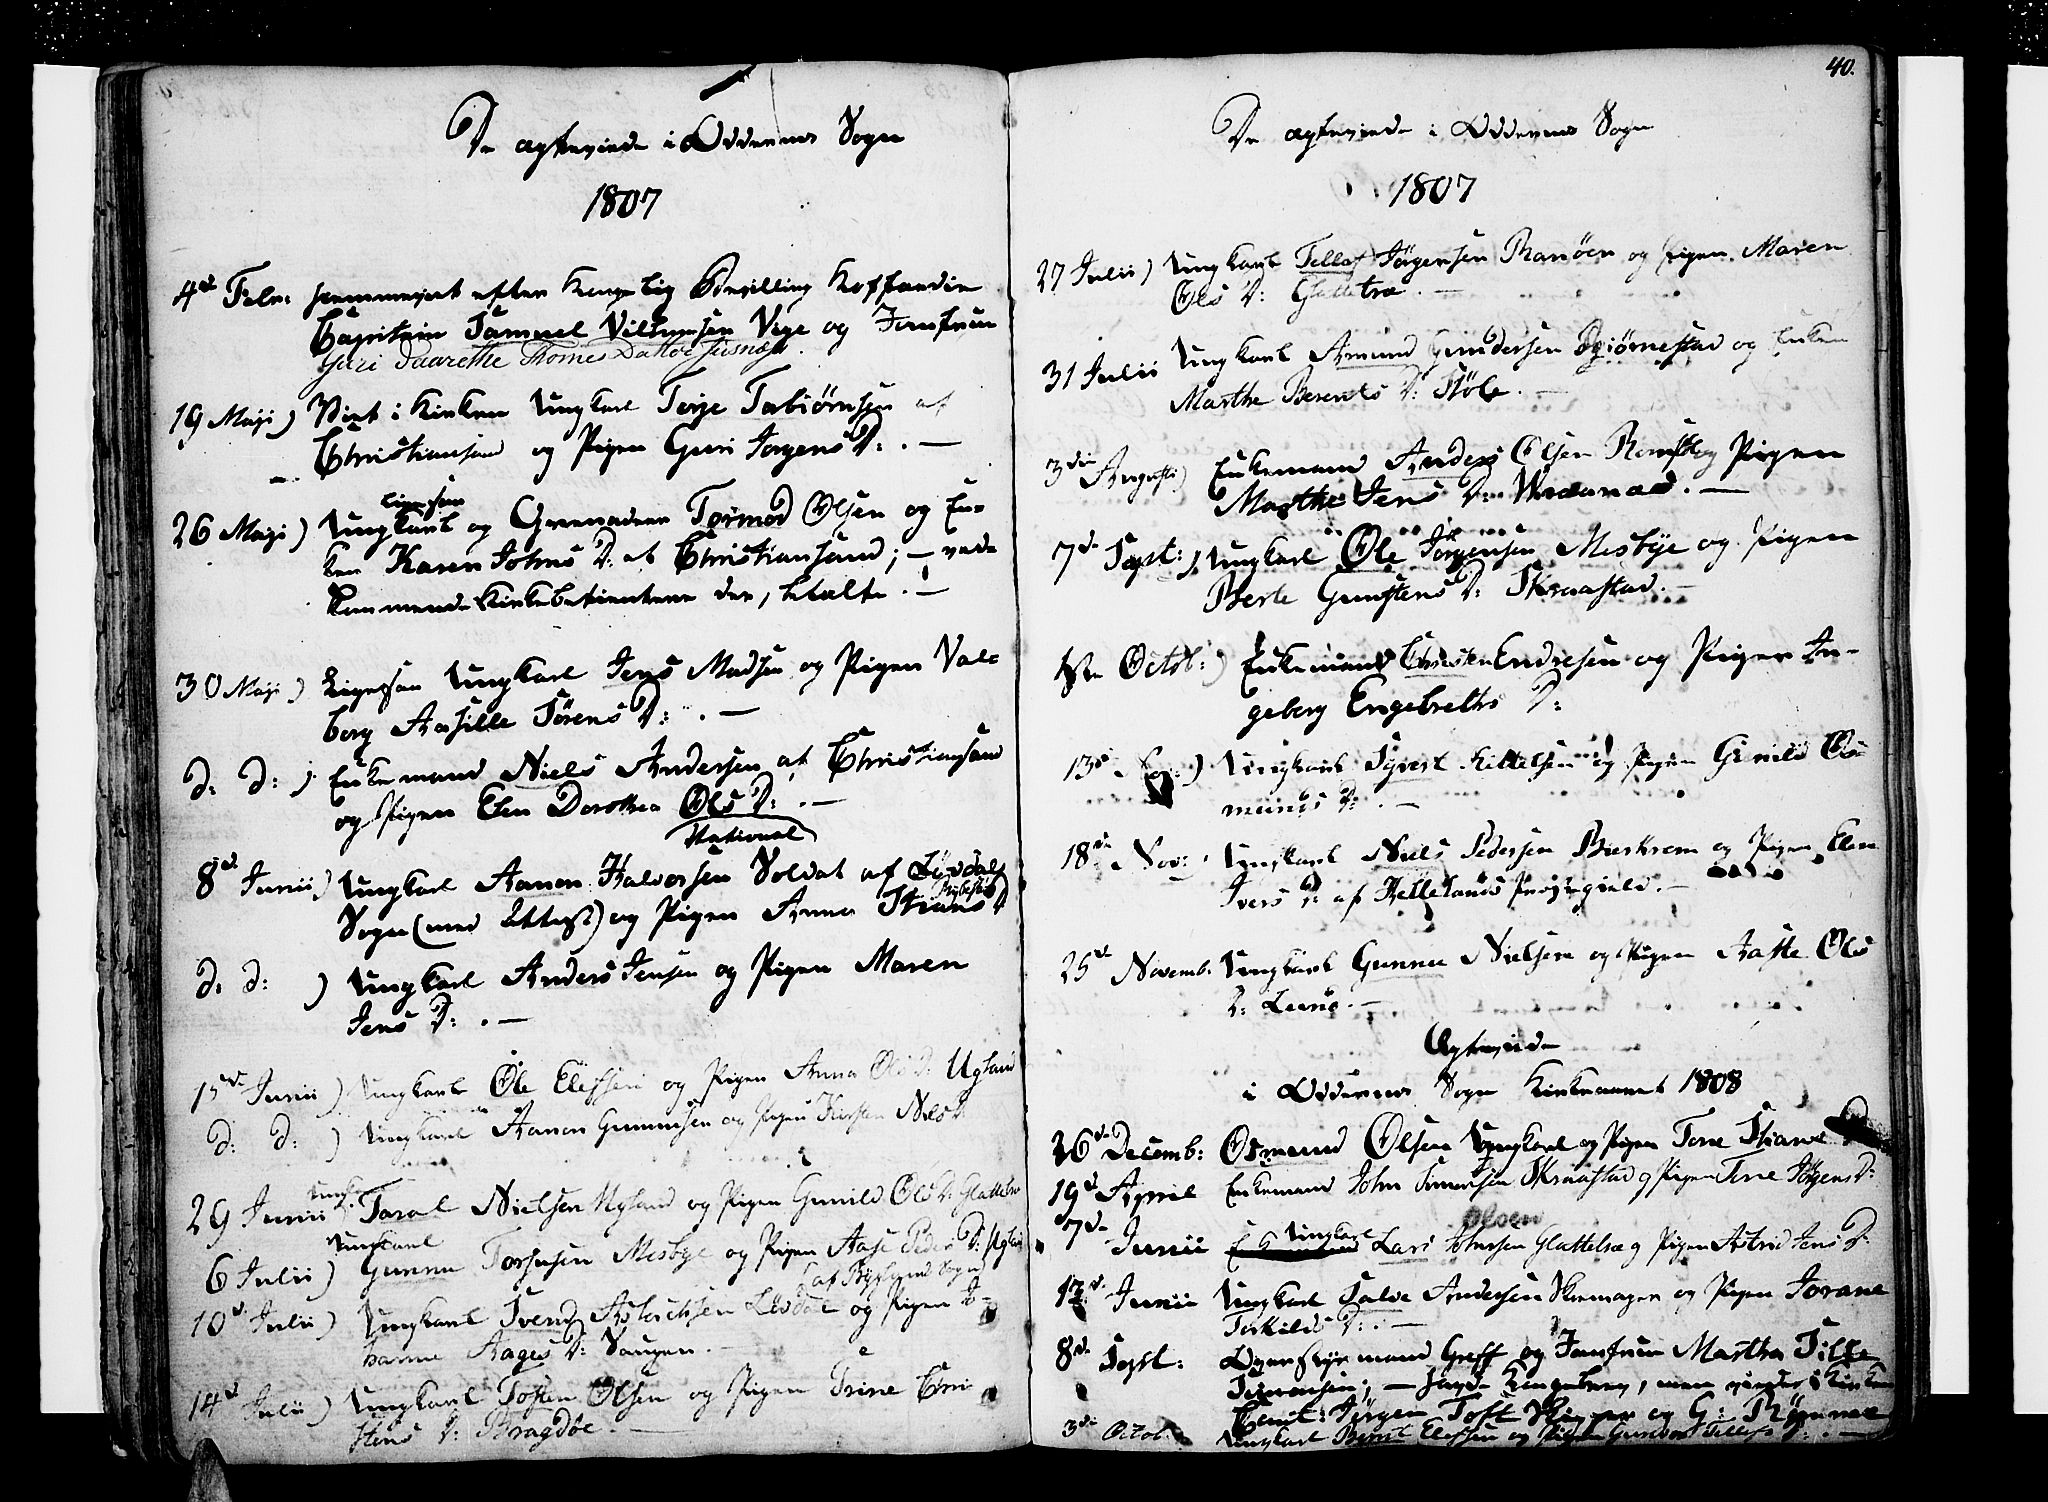 De ægteviede i Oddernes Sogn
1807
4de Febr: hjemmeviet efter Kongelig Bevilling Koffardie
Capitain Samuel Villumsen Vige og Jomfrue
Giuri Daarethe Thomes Datter
19 Maji) Viet i Kirken Ungkarl Terje Tobiørnsen af
Christiansand og Pigen Guri Jørgens D: . —
ligesaa
26 Maji) Ungkarl og Grenadeer Tormod Olsen og En-
ken Karen Johns D: af Christiansand; — ved-
kommende Kirkebetientere der, betalte . —
30 Maji) Ligesaa Ungkarl Jens Madsen og Pigen Val-
borg Aasille Sørens D: . —
d: d: ) Enkemand Niels Andersen af Christiansand
og Pigen Elen Dorothea Ols D: . —
National
8de Junii) Ungkarl Aanon Halvorsen Soldat af Løvdals
Sogn (med Attest) og Pigen Anna Stians D
d: d: ) Ungkarl Anders Jensen og Pigen Maren
Jens D: . —
15de Junii) Ungkarl Ole Elefsen og Pigen Anna Ols D: Ugland
d: d: ) Ungkarl Aanon Gunnufsen og Pigen Kirsten Niels D
Ungk.
29 Junii) Taral Nielsen Ugland og Pigen Gunild Ols D: Glattetræ
Ungkarl
6 Julii) Gunnu Torjusen Mosbye og Pigen Aase Peders D: Ugland
af Byglands Sogn
10de Julii) Ungkarl Svend Asloachsen Løvdal og Pigen Jo-
hanne Aages D: Vaagen. —
14de Julii) Ungkarl Tosten Olsen og Pigen Trine Chri
stens D: Bragdøe. —
40.
De ægteviede i Oddernes Sogn
1807
27 Julii) Ungkarl Tellef Jørgensen Ranøen og Pigen Maren
Ols D: Glattetræ. —
31 Julii Ungkarl Amund Gundersen Biørnestad og Enken
Marthe Berents D: Støle. —
3die Augusti) Enkemand Anders Olsen Romst og Pigen
Marthe Jens D: Vraanæs. —
7de Sept:) Ungkarl Ole Jørgensen Mosbye og Pigen
Berte Gunstens D: Skraastad. —
Octob:) Enkemand Christen Endresen og Pigen In-
geborg Engebreths D:
13de Ungkarl Syvert Kittelsen og Pigen Gunild Os-
munds D: . —
18de Nov: Ungkarl Niels Pedersen Bierkrem og Pigen Elen
Ivers D: af Hellelands Præstegield. —
25de Novemb: Ungkarl Gunnu Nielsen og Pigen Aasse Ols
D: Lunde. —
Ægteviede
i Oddernes Sogn Kirkeaaret 1808
26de Decemb: Osmund Olsen Ungkarl og Pigen Tone Stians D
19de April Enkemand John Simonsen Skraastad og Pigen Tone Jørgens D:
Olsen
Ungkarl
7de Junii Lars Johnsen Glattetræ og Pigen Astrid Jens D:
12de Junii Ungkarl Salve Andersen Skomager og Pigen Jorane
Terkilds D: . —
8de Sept: Overstyrmand Greff og Jomfrue Martha Sille
Simonsen; — havde Kongebrev, men viedes i Kirken
Caut: Jørgen Toft og G: Rømme
3die Octob: Ungkarl Berent Elefsen og Pigen Gunvor Tellefs D: . —